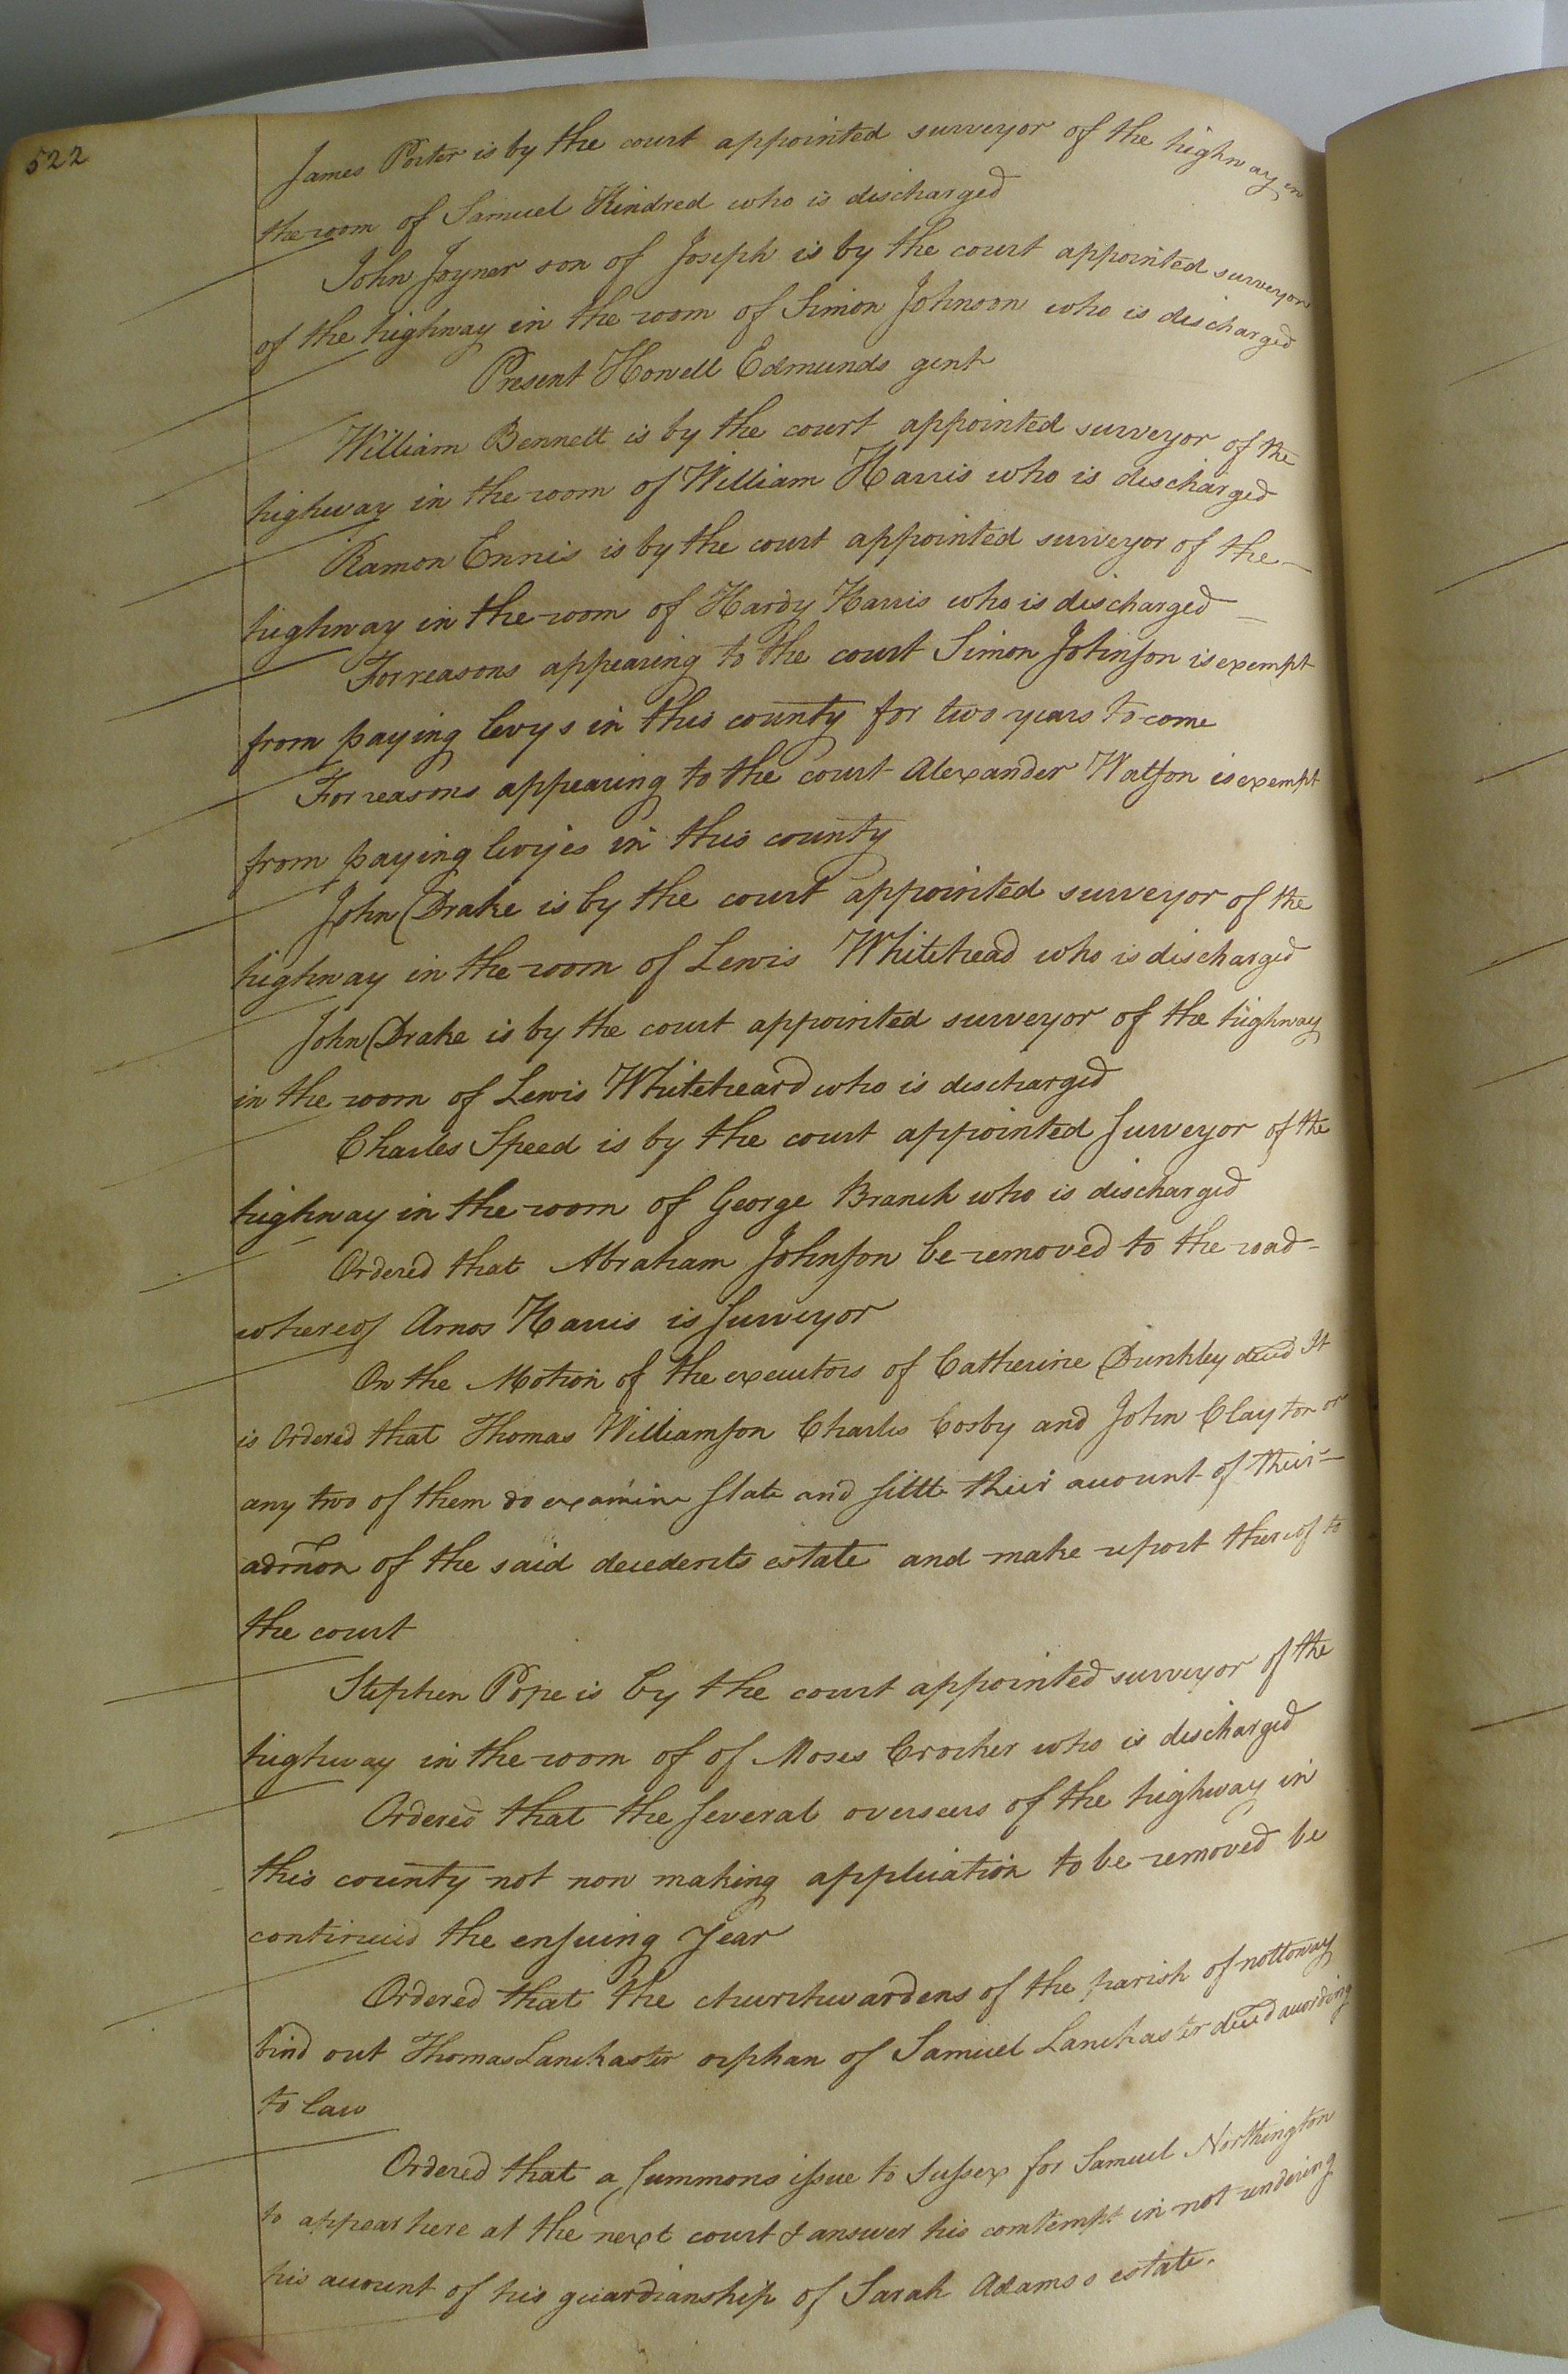 522
James Porter is by the court appointed surveyor of the highway in
the room of Samuel Kindred who is discharged
John Joyner son of Joseph is by the court appointed surveyor
of the highway in the room of Simon Johnson who is discharged
Present Howell Edmunds gent
William Bennett is by the court appointed surveyor of the
highway in the room of William Harris who is discharged
Ramon Ennis is by the court appointed surveyor of the
highway in the room of Hardy Harris who is discharged
For reasons appearing to the court Simon Johnson is exempt
from paying levys in this county for two years to come
For reasons appearing to the court Alexander Watson is exempt
from paying levyes in this county
John Drake is by the court appointed surveyor of the
highway in the room of Lewis Whitehead who is discharged
John Drake is by the court appointed surveyor of the highway
in the room of Lewis Whiteheard who is discharged
Charles Speed is by the court appointed Surveyor of the
highway in the room of George Branch who is discharged
Ordered that Abraham Johnson be removed to the road
whereof Amos Harris is Surveyor
On the Motion of the executors of Catherine Dunkley decd It
is Ordered that Thomas Williamson Charles Cosby and John Clayton or
any two of them do examine State and Settle their account of their
admon of the said decedents estate and make report thereof to
the court
Stephen Pope is by the court appointed surveyor of the
highway in the room of of Moses Crocker who is discharged
Ordered that the Several overseers of the highway in
this county not now making application to be removed be
continued the ensuing year
Ordered that the churchwardens of the parish of nottoway
bind out Thomas Lanchaster orphan of Samuel Lanchaster decd according
to law
Ordered that a Summons issue to Sussex for Samuel Northington
to appear here at the next court & answer his comtempt in not rendering
his account of his guardianship of Sarah Adams s estate.